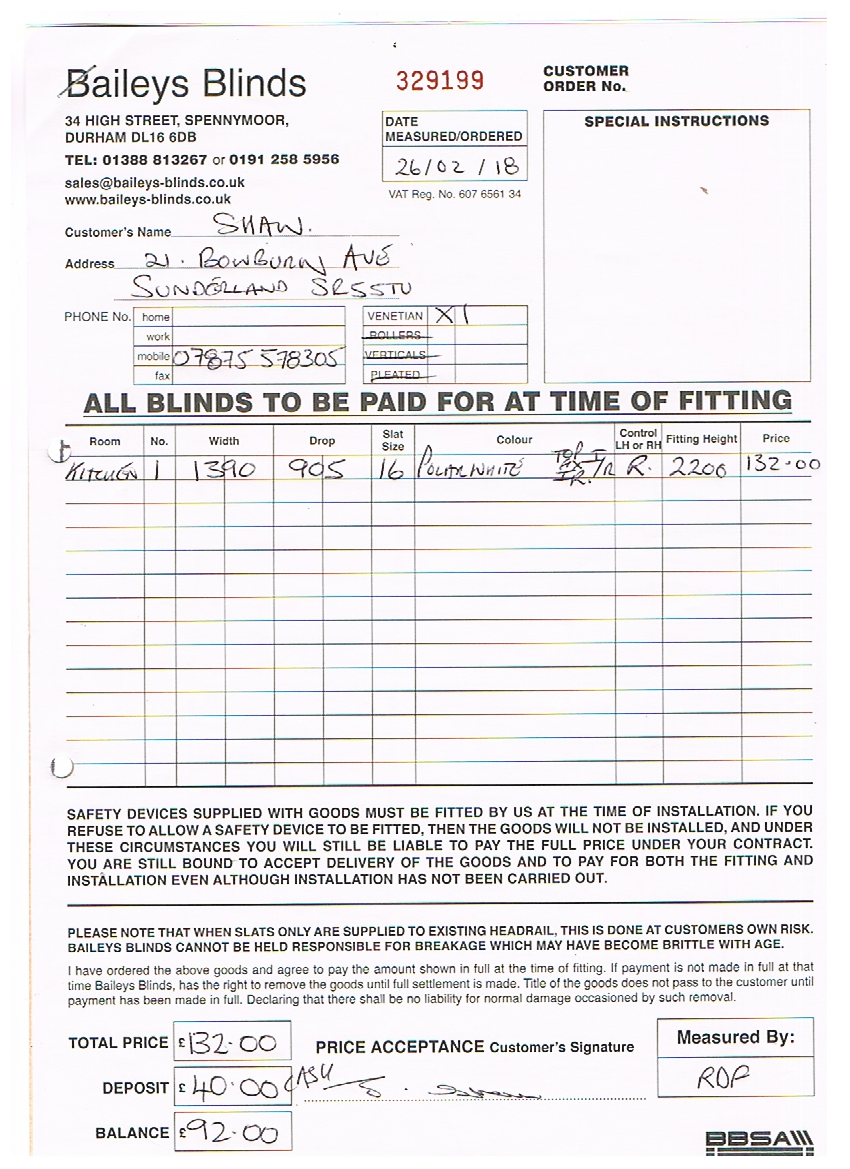 Baileys Blinds
34 HIGH STREET, SPENNYMOOR,
DURHAM DL16 6DB
TEL: 01388 813267 or 0191 258 5956
sales@baileys-blinds.co.uk
www.baileys-blinds.co.uk
329199
DATE
MEASURED/ORDERED
26/02/18
VAT Reg. No. 607 6561 34
CUSTOMER
ORDER No.
SPECIAL INSTRUCTIONS
Customer's Name SHAW.
Address 21. BOWBURN AVE
SUNDERLAND SR5 5TU
PHONE No. home
work
mobile 07875 578305
fax
VENETIAN X 1
ROLLERS
VERTICALS
PLEATED
ALL BLINDS TO BE PAID FOR AT TIME OF FITTING
Room No. Width Drop Slat Size Colour Control LH or RH Fitting Height Price
KITCHEN 1 1390 905 16 POLAR WHITE R. 2200 132.00
SAFETY DEVICES SUPPLIED WITH GOODS MUST BE FITTED BY US AT THE TIME OF INSTALLATION. IF YOU
REFUSE TO ALLOW A SAFETY DEVICE TO BE FITTED, THEN THE GOODS WILL NOT BE INSTALLED, AND UNDER
THESE CIRCUMSTANCES YOU WILL STILL BE LIABLE TO PAY THE FULL PRICE UNDER YOUR CONTRACT.
YOU ARE STILL BOUND TO ACCEPT DELIVERY OF THE GOODS AND TO PAY FOR BOTH THE FITTING AND
INSTALLATION EVEN ALTHOUGH INSTALLATION HAS NOT BEEN CARRIED OUT.
PLEASE NOTE THAT WHEN SLATS ONLY ARE SUPPLIED TO EXISTING HEADRAIL, THIS IS DONE AT CUSTOMERS OWN RISK.
BAILEYS BLINDS CANNOT BE HELD RESPONSIBLE FOR BREAKAGE WHICH MAY HAVE BECOME BRITTLE WITH AGE.
I have ordered the above goods and agree to pay the amount shown in full at the time of fitting. If payment is not made in full at that
time Baileys Blinds, has the right to remove the goods until full settlement is made. Title of the goods does not pass to the customer until
payment has been made in full. Declaring that there shall be no liability for normal damage occasioned by such removal.
TOTAL PRICE £132.00
DEPOSIT £40.00 CASH
BALANCE £92.00
PRICE ACCEPTANCE Customer's Signature
Measured By:
ROP
BBSA